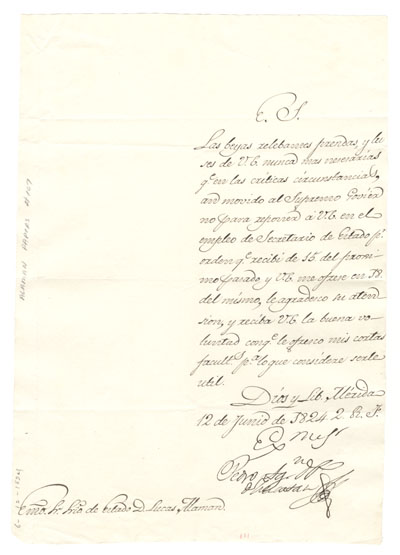 E. S.
Las beyas relebantes prendas, y lu
ses de V.E. nunca mas necesarias
q.e en las criticas circunstancias,
and movido al Supremo Govier
no para reponer á V.E. en el
empleo de Secretario de Estado p.r
orden q.e recibi de 15 del proxi
mo pasado y V.E. me ofrese en 18
del mismo, le agradesco su aten
sion, y reciba V.E. la buena vo
luntad con q.e le ofresco mis cortas
facult.s p.a lo que considere serle
util.
Dios y Lib. Mérida
12 de Junio de 1824. 2.
Pedro
Emo. Sr. Srio. de Estado D. Lucas Alaman.